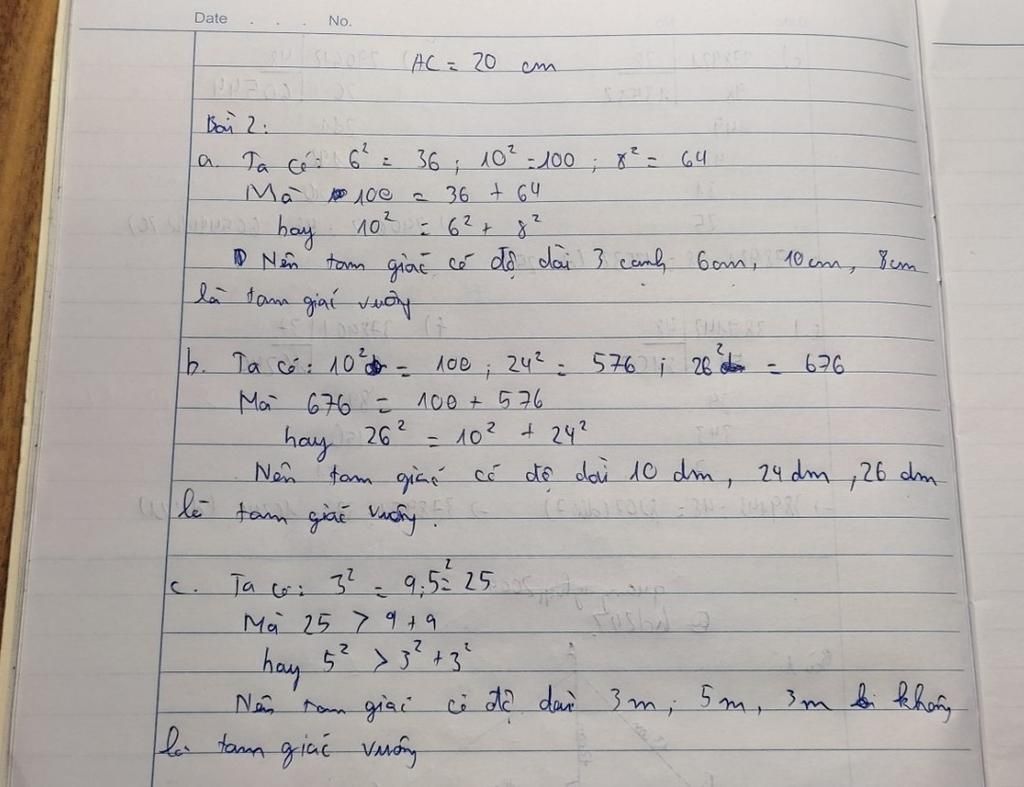 Date . . . No.
AC = 20 cm
Bài 2:
a. Ta có: 6² = 36 ; 10² = 100 ; 8² = 64
Mà 100 = 36 + 64
hay 10² = 6² + 8²
Nên tam giác có độ dài 3 cạnh 6cm, 10cm, 8cm
là tam giác vuông
b. Ta có: 10² = 100 ; 24² = 576 ; 26² = 676
Mà 676 = 100 + 576
hay 26² = 10² + 24²
Nên tam giác có độ dài 10 dm, 24 dm, 26 dm
là tam giác vuông.
c. Ta có: 3² = 9, 5² = 25
Mà 25 > 9 + 9
hay 5² > 3² + 3²
Nên tam giác có độ dài 3m, 5m, 3m không
là tam giác vuông